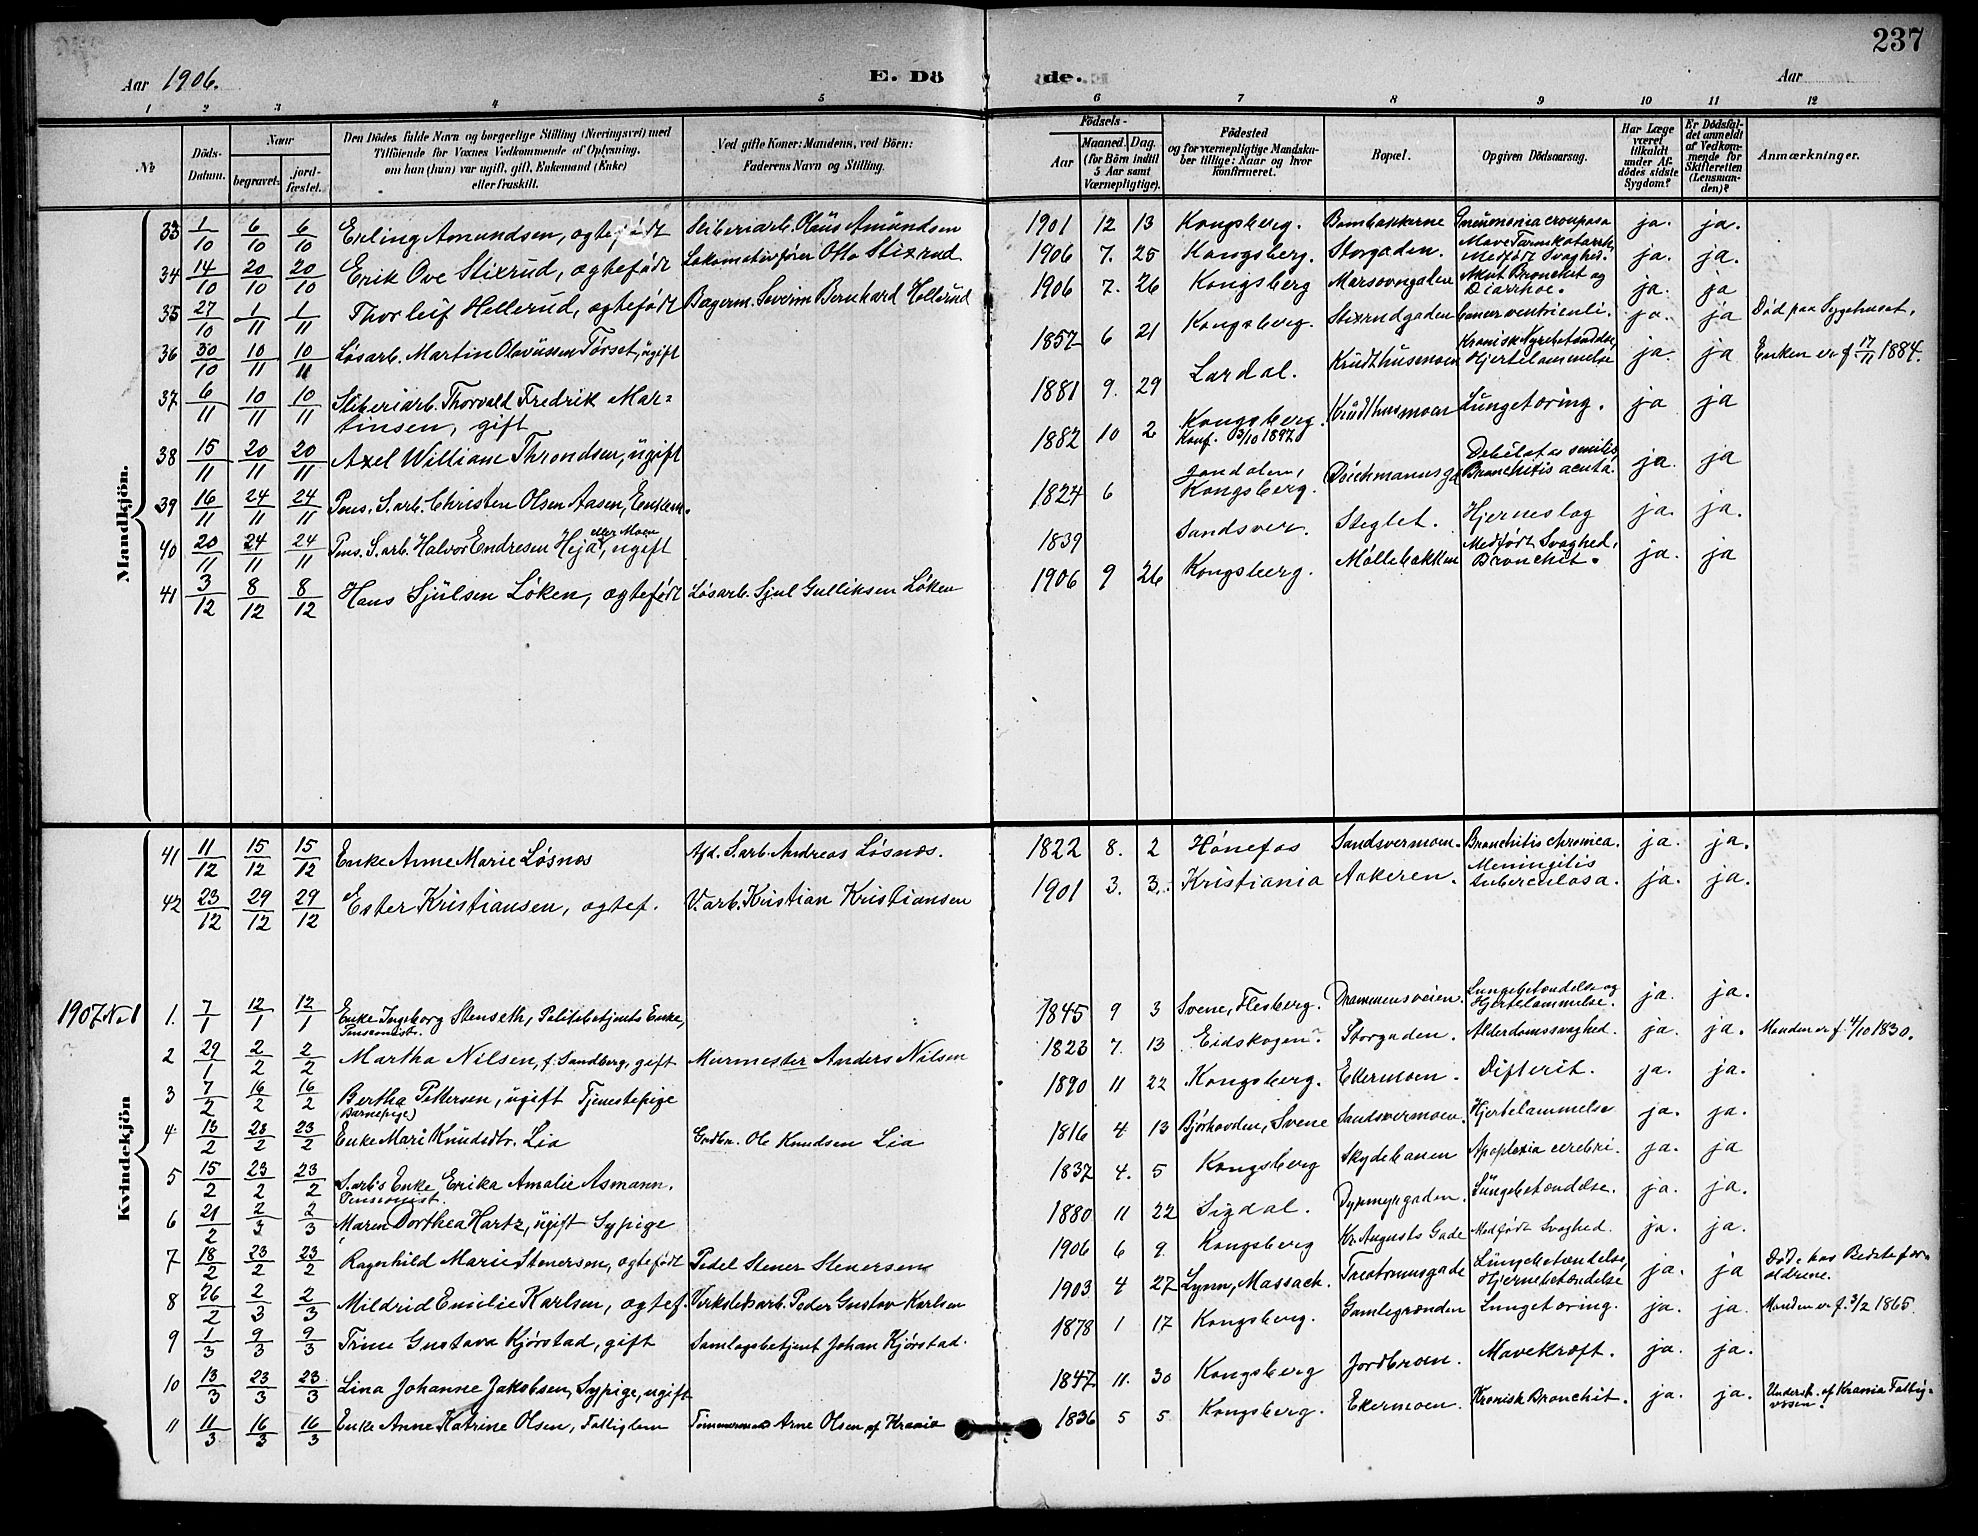 237
Aar 1906. E. Dö de. Aar
1 2 3 4 5 6 7 8 9 10 11 12
№
Döds-Datum.
Naar
begravet.
jord-fæstet.
Den Dödes fulde Navn og borgerlige Stilling (Næringsvei) med
Tilföiende for Voxnes Vedkommende af Oplysning,
om han (hun) var ugift, gift, Enkemand (Enke)
eller fraskilt.
Ved gifte Koner: Mandens, ved Börn:
Faderens Navn og Stilling.
Födsels-
Aar
Maaned. Dag.
(for Börn indtil
5 Aar samt
Værnepligtige).
Födested
og for værnepligtige Mandska-
ber tillige: Naar og hvor
konfirmeret.
Bopæl.
Opgiven Dödsaarsag.
Har Læge
været
tilkaldt
under Af-
dödes sidste
Sygdom?
Er Dödsfal-
det anmeldt
af Vedkom-
mende for
Skifteretten
(Lensman-
den)?
Anmærkninger.
Mandkjön.
33 1/10 6/10 6/10 Erling Amundsen, ægtefødt Stiberiarb. Olaus Amundsen 1901 12 13 Kongsberg. Bombakkerne Pneumonia crouposa ja. ja.
34 14/10 20/10 20/10 Erik Ove Stixrud, ægtefødt Lokomotivfører Otto Stixrud 1906 7. 25 Kongsberg. Storgaden. Mave Tarmkatarrh, Medfødt Svaghed. ja. ja.
35 27/10 1/11 1/11 Thorleif Hellerud, ægtefødt Bagerm. Severin Bernhard Hellerud 1906 7. 26 Kongsberg Akut Bronchit og Diarrhoe. ja. ja
36 30/10 10/11 10/11 Løsarb. Martin Olavussen Tørset, ugift 1857 6 21 Kongsberg. Stixrudgaden Cancer ventrienli. ja. ja Død paa Sygehuset.
37 6/11 10/11 10/11 Stiberiarb. Thorvald Fredrik Mar=
tinsen, gift 1881 9. 29 Lardal. Krudthusmoen Kronisk Nyrebetændelse, Hjertelammelse ja. ja Enken er f. 17/11 1884.
38 15/11 20/11 20/11 Axel William Throndsen, ugift 1882 10 2 Kongsberg. Konf. 3/10 1897 Krudthusmoen Lungetæring. ja ja
39 16/11 24/11 24/11 Pens. S.arb. Christen Olsen Aasen, Enkem. 1824 6 Jondalen, Kongsberg. Deichmannsgd Debilitas senilis, Bronchitis acuta. ja. ja
40 20/11 24/11 24/11 Pens. S.arb. Halvor Endresen Heja eller Moen, ugift 1839 Sandsver. Steglet. Hjerneslag ja. ja.
41 3/12 8/12 8/12 Hans Sjulsen Løken, ægtefødt Løsarb. Sjul Gulliksen Løken 1906 9 26 Kongsberg. Møllebakken Medfødt Svaghed, Bronchit. ja. ja
Kvindekjön
41 11/12 15/12 15/12 Enke Anne Marie Løsnes Afd. S.arb. Andreas Løsnæs. 1822 8. 2 Hønefos Sandsvermoen. Bronchitis chronica. ja. ja.
42 23/12 29/12 29/12 Ester Kristiansen, ægtef. V.arb. Kristian Kristiansen 1901 3. 3. Kristiania Aakeren. Meningitis tuberculosa. ja. ja.
1907 No 1
1. 7/1 12/1 12/1 Enke Ingeborg Stenseth, Politibetjents Enke,
Pensionist. 1845 9 3 Svene, Flesberg. Drammensveien. Lungebetændelse og Hjertelammelse. ja. ja.
2 29/1 2/2 2/2 Martha Nilsen, f. Sandberg, gift Murmester Anders Nilsen 1823 7. 13 Eidskogen Storgaden. Alderdomssvaghed. ja. ja. Manden er f. 4/10 1830.
3 7/2 16/2 16/2 Bertha Pettersen, ugift Tjenestepige
(Barnepige) 1890 11 22 Kongsberg. Ekermoen. Difterit. ja. ja.
4. 13/2 23/2 23/2 Enke Mari Knudsdtr. Lia Grdbr. Ole Knudsen Lia 1816 4 13 Svene Sandsvermoen. Hjertelammelse ja. ja.
5 15/2 23/2 23/2 S.arb's Enke Erika Amalie Asmann.
Pensionist. 1837 4. 5 Kongsberg Skydebanen Apoplexia cerebri. ja. ja
6 21/2 2/3 2/3 Maren Dorthea Hartz, ugift Sypige 1880 11 22 Sigdal. Dypmyrgaden. Lungebetændelse. ja. ja.
7 18/2 23/2 23/2 Ragnhild Marie Stenersen, ægtefødt Pedel Stener Stenersen 1906 6 9. Kongsberg Kr. Augusts Gade Medfødt Svaghed. ja. ja.
8 26/2 2/3 2/3 Mildrid Emilie Karlsen, ægtef. Verkstedsarb. Peder Gustav Karlsen 1903 4 27 Lynn, Massach. Lungebetændelse, Hjernebetændelse ja. ja Død hos Bedstefor-
ældrene.
9 1/3 9/3 9/3 Trine Gustava Kjørstad, gift Samlagsbetjent Johan Kjørstad. 1878 1 17 Kongsberg. Gamlegrænden Lungetæring. ja. ja. Manden er f. 3/2 1865.
10 13/3 23/3 23/3 Lina Johanne Jakobsen, Sypige, ugift 1847 11. 30 Kongsberg Jordbroen. Mavekræft. ja. ja.
11 11/3 16/3 16/3 Enke Anne Katrine Olsen, Fattiglem Tømmermand Arne Olsen af Krania 1836 5 5 Kongsberg. Ekermoen. Kronisk Bronchit. ja. ja. Underst. af Krania Fattig-
væsen.